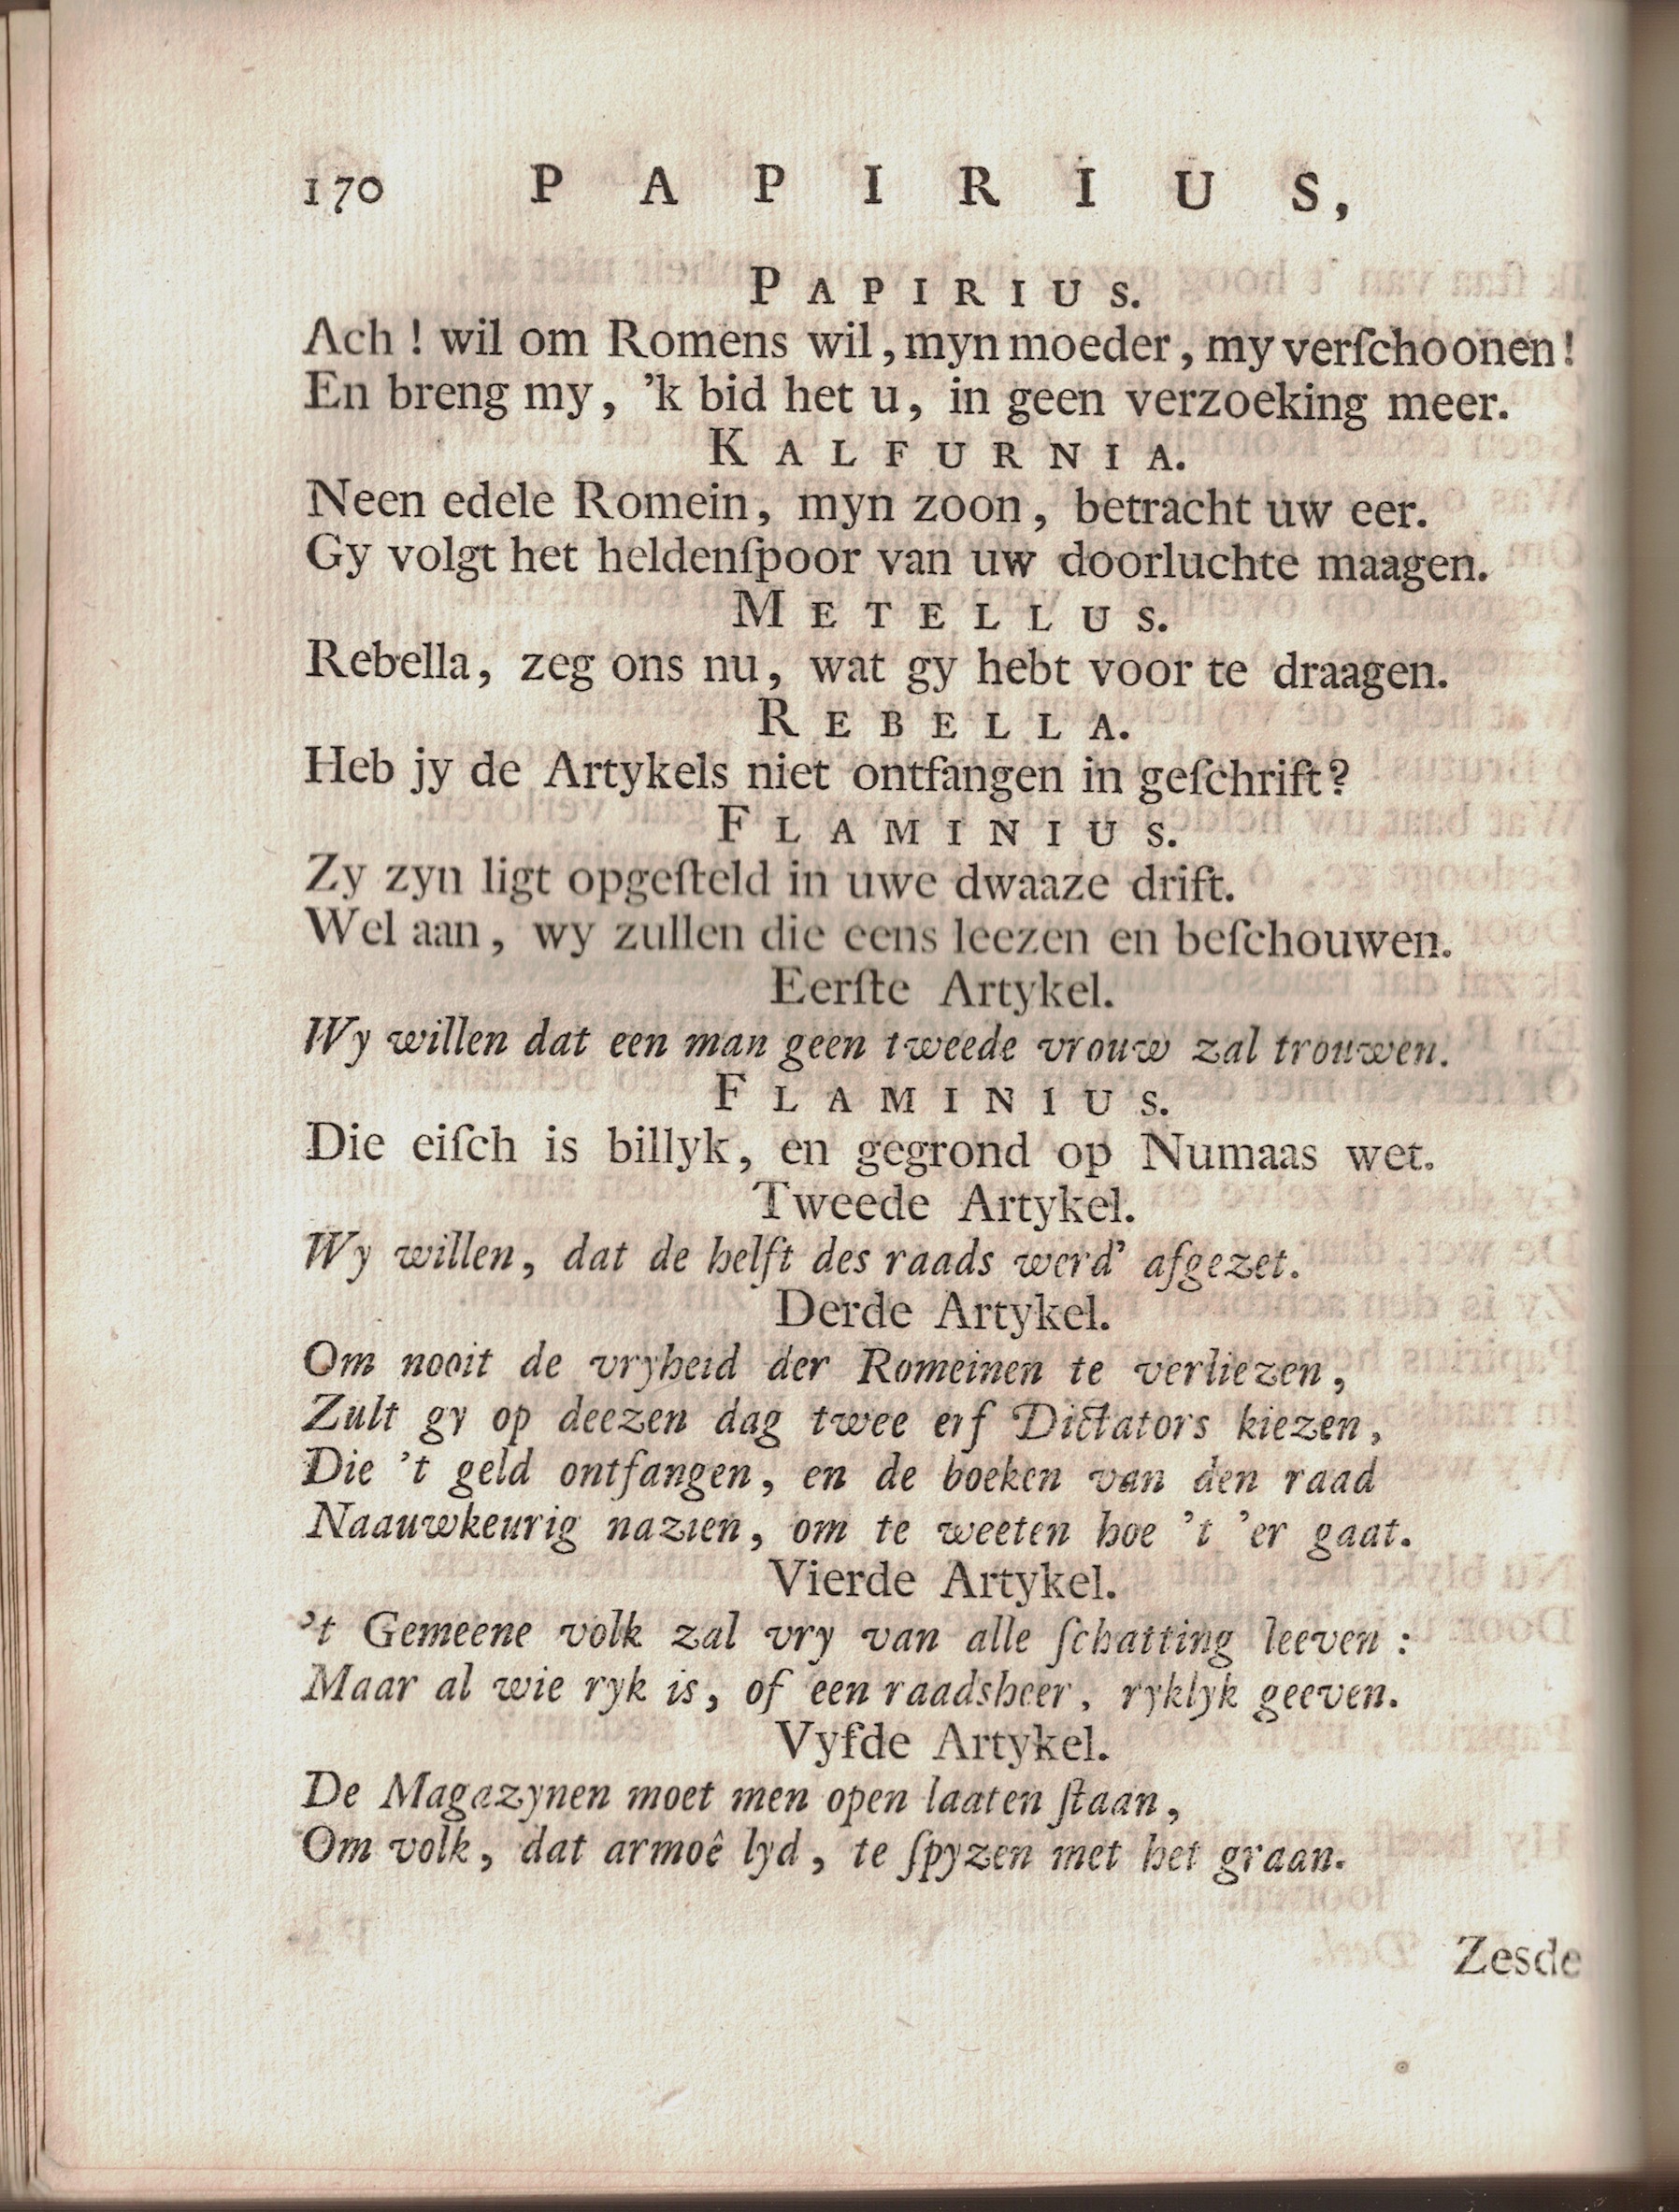 170 PAPIRIUS,
PAPIRIUS.
Ach! wil om Romens wil, myn moeder, my verſchoonen!
En breng my, ’k bid het u, in geen verzoeking meer.
KALFURNIA.
Neen edele Romein, myn zoon, betracht uw eer.
Gy volgt het heldenſpoor van uw doorluchte maagen.
METELLUS.
Rebella, zeg ons nu, wat gy hebt voor te draagen.
REBELLA.
Heb jy de Artykels niet ontfangen in geſchrift?
FLAMINIUS.
Zy zyn ligt opgeſteld in uwe dwaaze drift.
Wel aan, wy zullen die eens leezen en beſchouwen.
Eerſte Artykel.
Wy willen dat een man geen tweede vrouw zal trouwen.
FLAMINIUS.
Die eiſch is billyk, en gegrond op Numaas wet.
Tweede Artykel.
Wy willen, dat de helft des raads werd’ afgezet.
Derde Artykel.
Om nooit de vryheid der Romeinen te verliezen,
Zult gy op deezen dag twee erf Dictators kiezen,
Die ’t geld ontfangen, en de boeken van den raad
Naauwkeurig nazien, om te weeten hoe ’t ’er gaat.
Vierde Artykel.
’t Gemeene volk zal vry van alle ſchatting leeven:
Maar al wie ryk is, of een raadsheer, ryklyk geeven.
Vyfde Artykel.
De Magazynen moet men open laaten ſtaan,
Om volk, dat armoê lyd, te ſpyzen met het graan.
Zesde